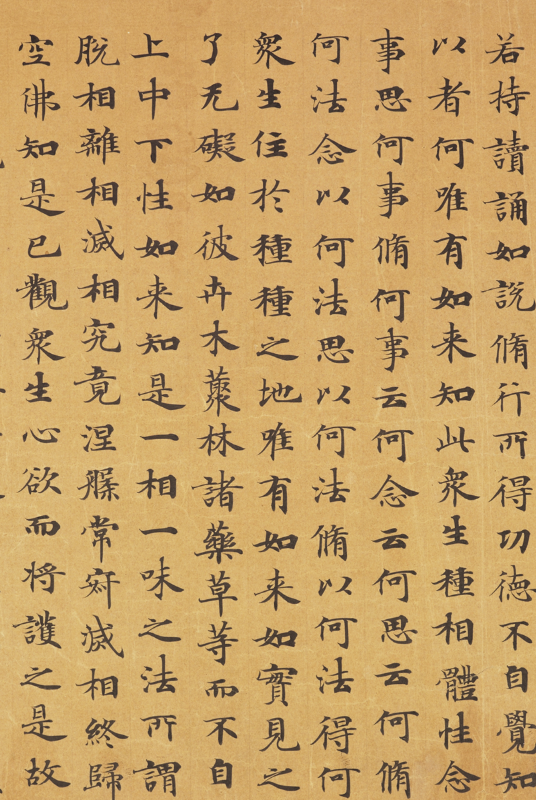 若持讀誦如說脩行所得功德不自覺知
以者何唯有如来知此衆生種相體性念
事思何事脩何事云何念云何思云何脩
何法念以何法思以何法脩以何法得何
衆生住於種種之地唯有如来如實見之
了无礙如彼卉木藂林諸藥草等而不自
上中下性如来知是一相一味之法所謂
脫相離相滅相究竟涅槃常寂滅相終歸
空佛知是已觀衆生心欲而将護之是故